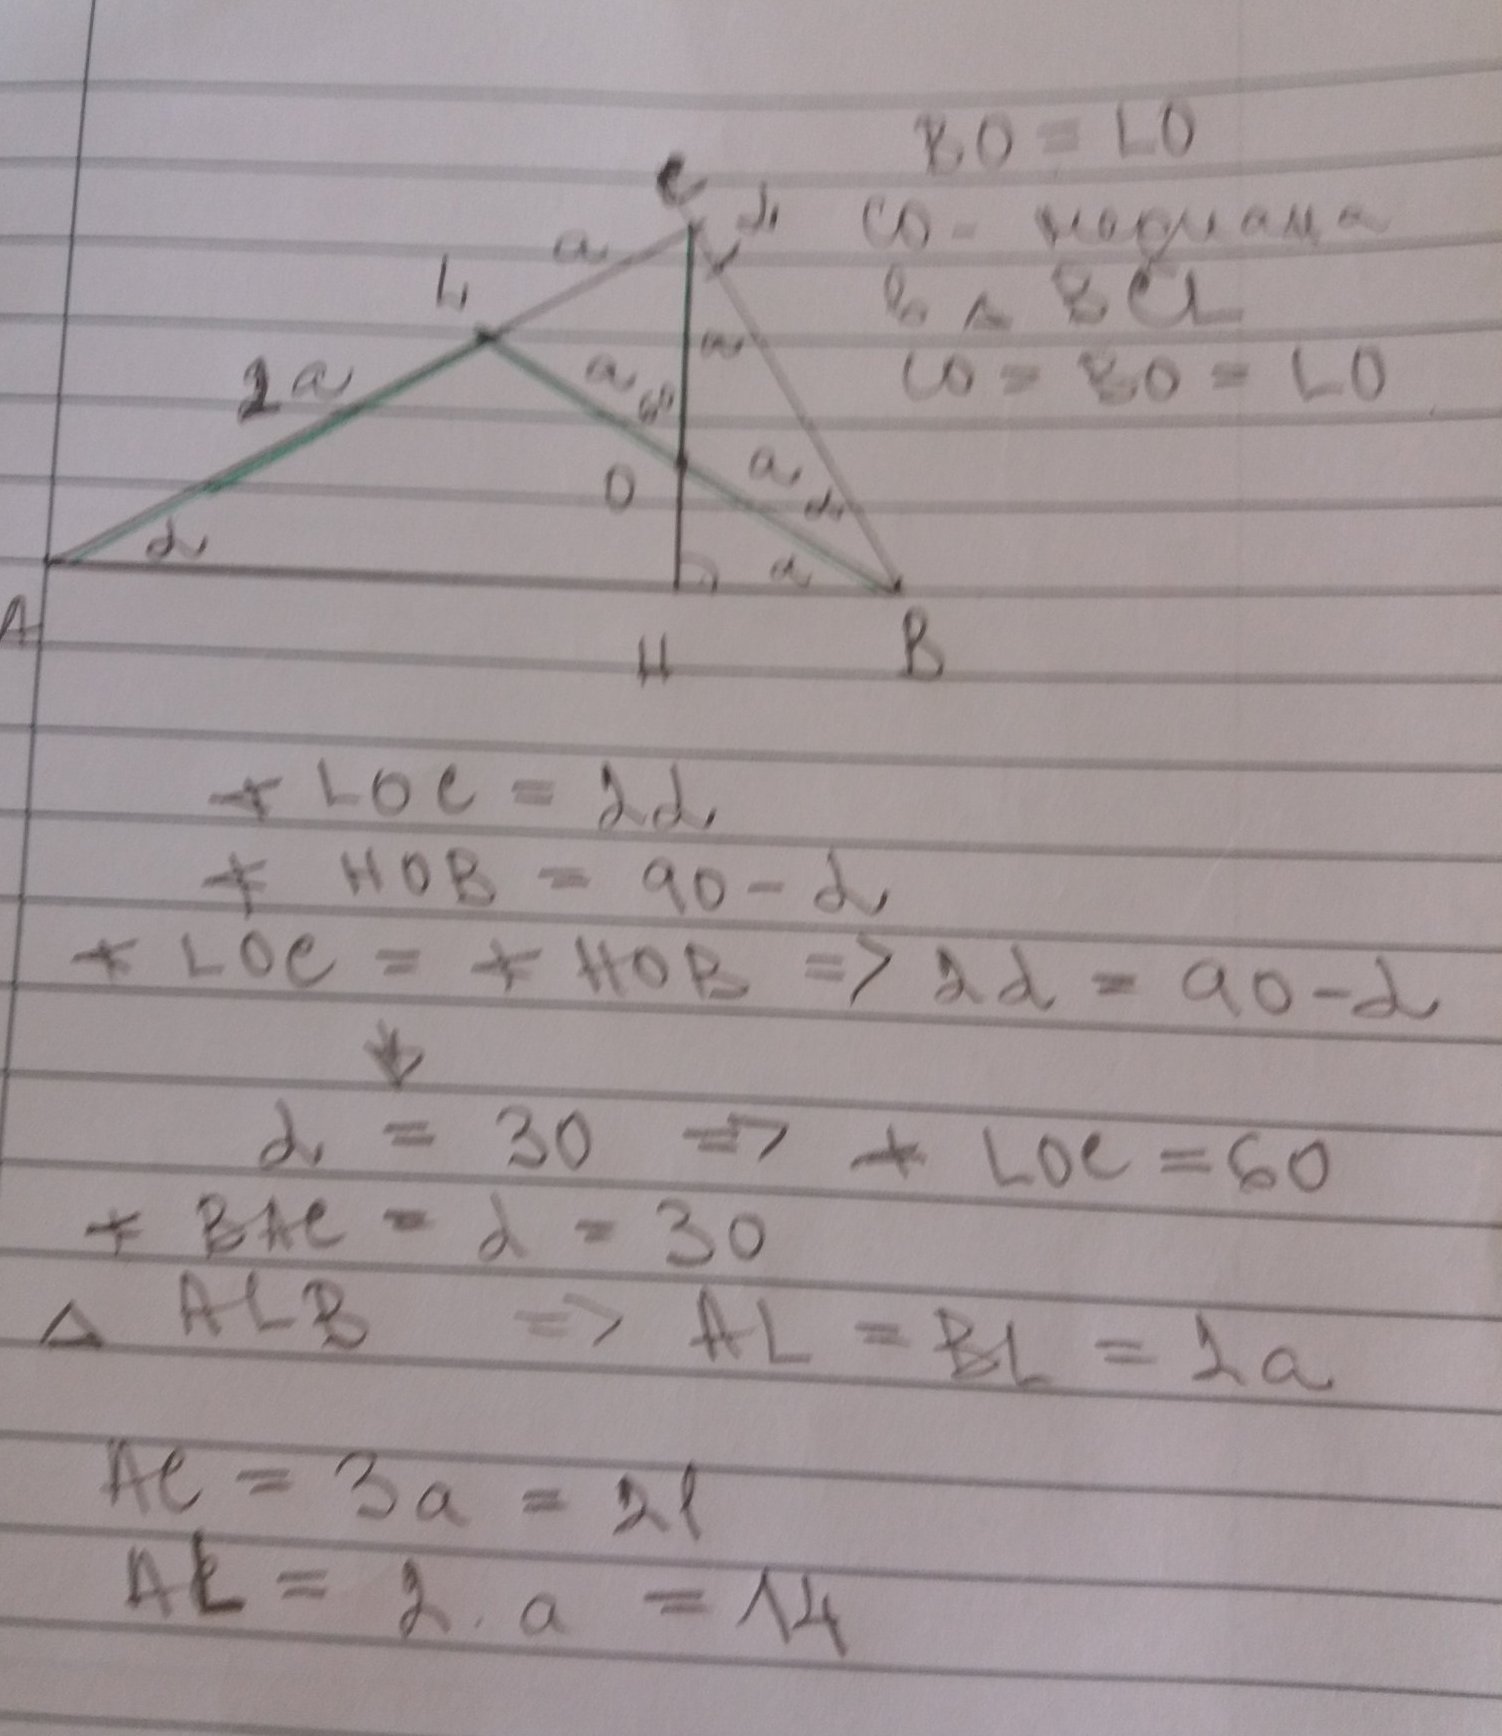 BO = LO
CO - медиана
в △ BCL
CO = BO = LO
C
α
a
L
a
2a
a
60
O
a
α
α
α
A
H
B
∢ LOC = 2α
∢ HOB = 90 - α
∢ LOC = ∢ HOB => 2α = 90 - α
↓
α = 30 => ∢ LOC = 60
∢ BAC = α = 30
△ ALB => AL = BL = 2a
AC = 3a = 21
AL = 2 . a = 14